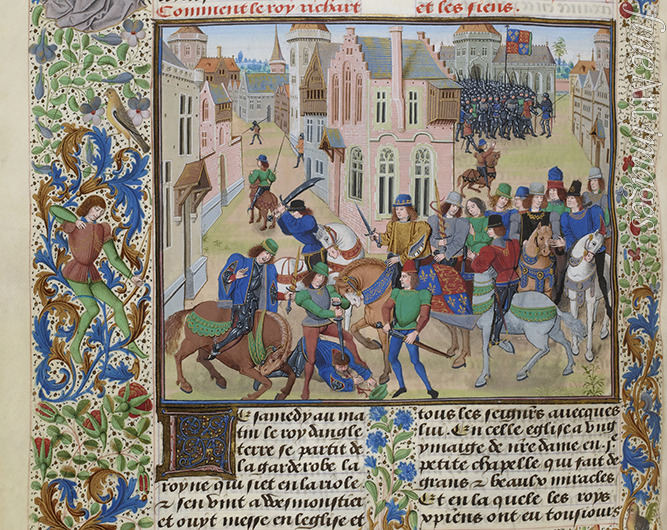 Comment le roy richart et les siens.
Le samedy au ma
tin le roy dangle
terre se partit de
la garderobe la
royne qui siet en la riole
& sen vint a Wesmonstier
et ouyt messe en leglise et
tous les seignrs avecques
lui. En celle eglise a ung
ymaige de nre dame en j.
petite chapelle qui fait de
grans & beaulx miracles
Et en la quele les roys
xpiens ont eu tousiours